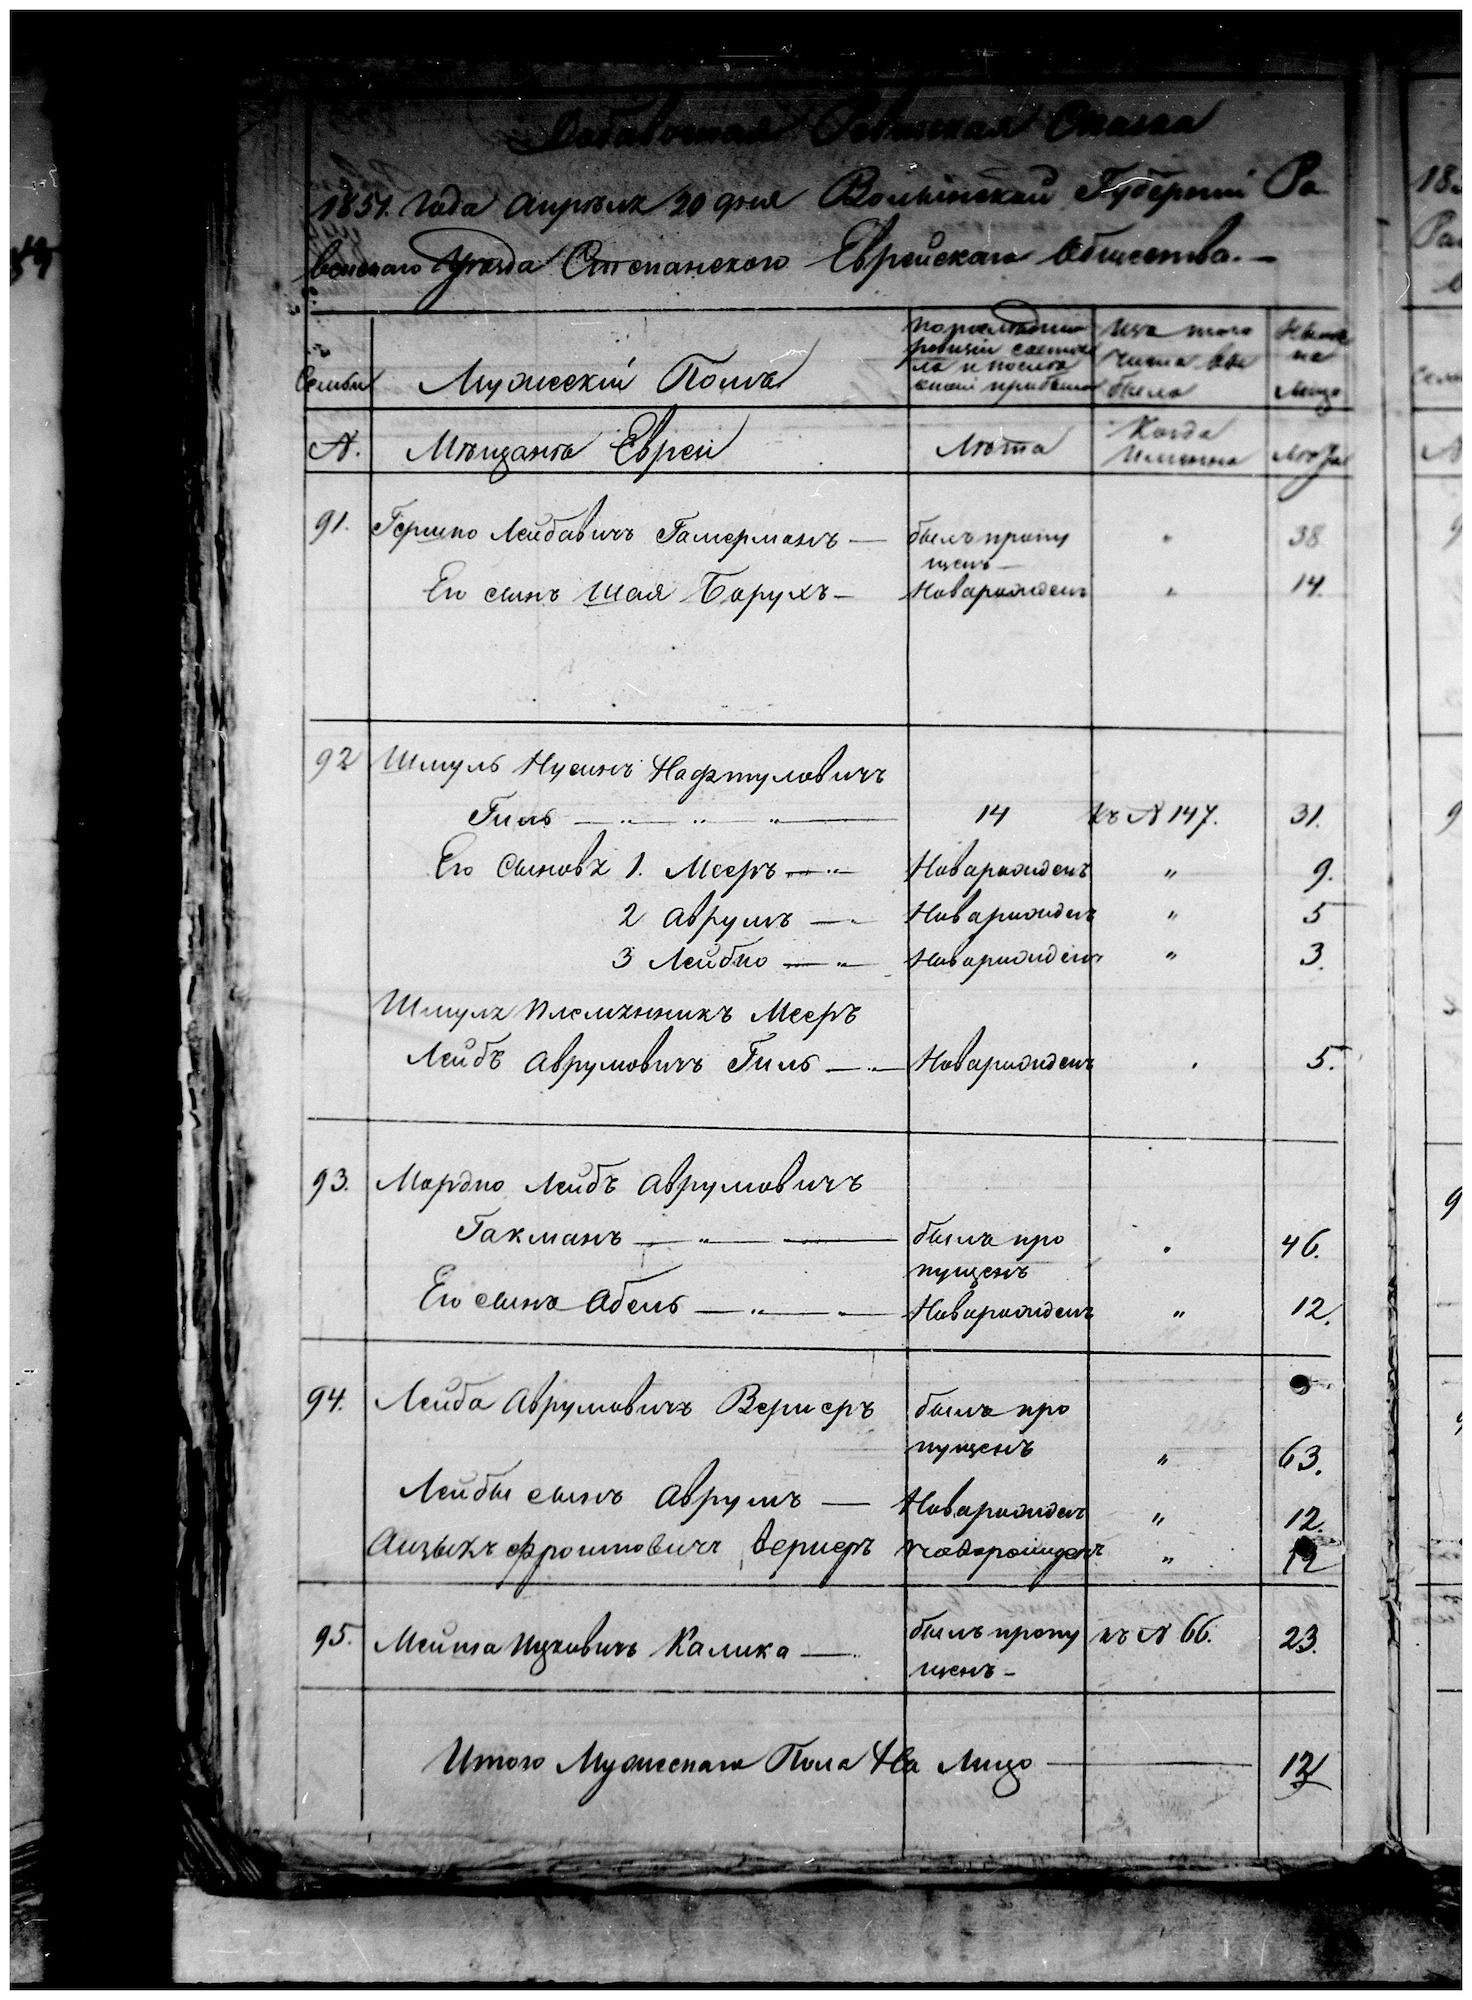 Добавочная Ревизская Сказка
1851. Года Апрѣля 20 дня Волынской Губернiи Ро
венского Уѣзда Степанского Еврейского Общества.—
Семьи
Мужескiй Полъ
По последней
ревизiи состоя
ло и после
оной прибыло
Изъ того
числа вы
было
Ныне
на
лицо
№.
Мѣщанъ Евреи
Лѣта
Когда
именно
Лѣта
91. Гершко Лейбовичъ Гамерманъ — былъ пропу " 38
щенъ —
Его сынъ Шая Борухъ — Новорожденъ " 14.
92 Шмуль Нусинъ Нафтуловичъ
Гиль — " — " — " — 14 къ № 147. 31.
Его Сыновя 1. Мееръ — " — Новорожденъ " 9.
2 Аврумъ — " Новорожденъ " 5
3 Лейбко — " Новорожденъ " 3.
Шмуля Племянникъ Мееръ
Лейбъ Аврумовичъ Гиль — " — Новорожденъ " 5.
93. Мордко Лейбъ Аврумовичъ
Гакманъ — " — былъ про " 46.
пущенъ
Его сынъ Абель — " — " Новорожденъ " 12.
94. Лейба Аврумовичъ Вернеръ былъ про
пущенъ " 63.
Лейбы сынъ Аврумъ — Новорожденъ " 12.
Айзыкъ Фроимовичъ Вернеръ новорожденъ " 12
95. Мейта Ицковичъ Калика — былъ пропу къ № 66. 23.
щенъ —
Итого Мужескаго Пола На Лицо — 12